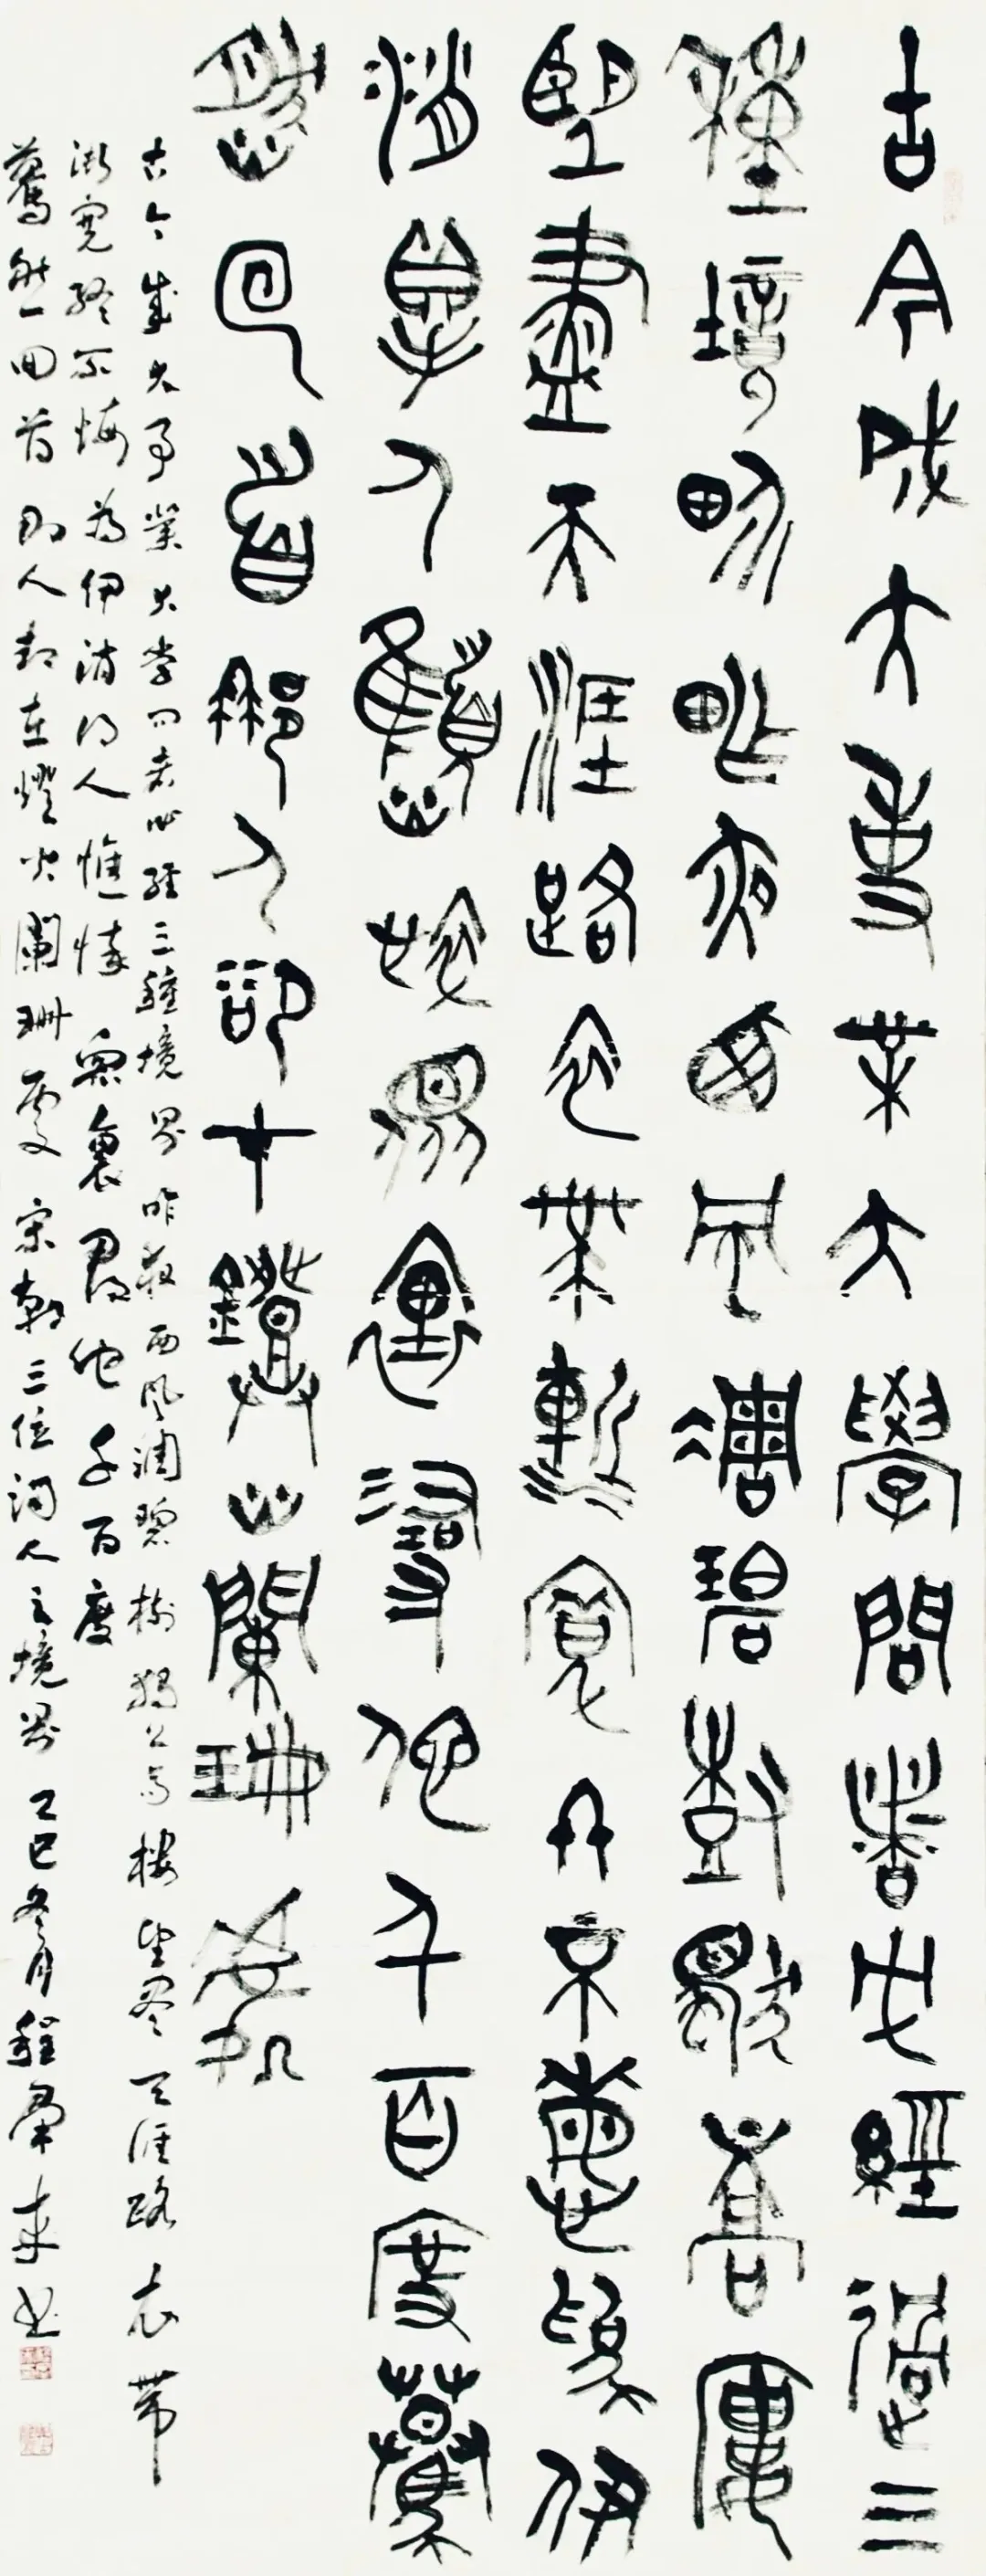 古今成大事業大學問者必經過三
種境界昨夜西風凋碧樹獨上高樓
望盡天涯路衣帶漸寬終不悔為伊
消得人憔悴眾裏尋他千百度驀
然回首那人卻在燈火闌珊處
古今成大事業大學問者必經三種境界昨夜西風凋碧樹獨上高樓望盡天涯路衣帶
漸寬終不悔為伊消得人憔悴眾裏尋他千百度
驀然回首那人卻在燈火闌珊處宋朝三位詞人之境界乙巳冬月程來書